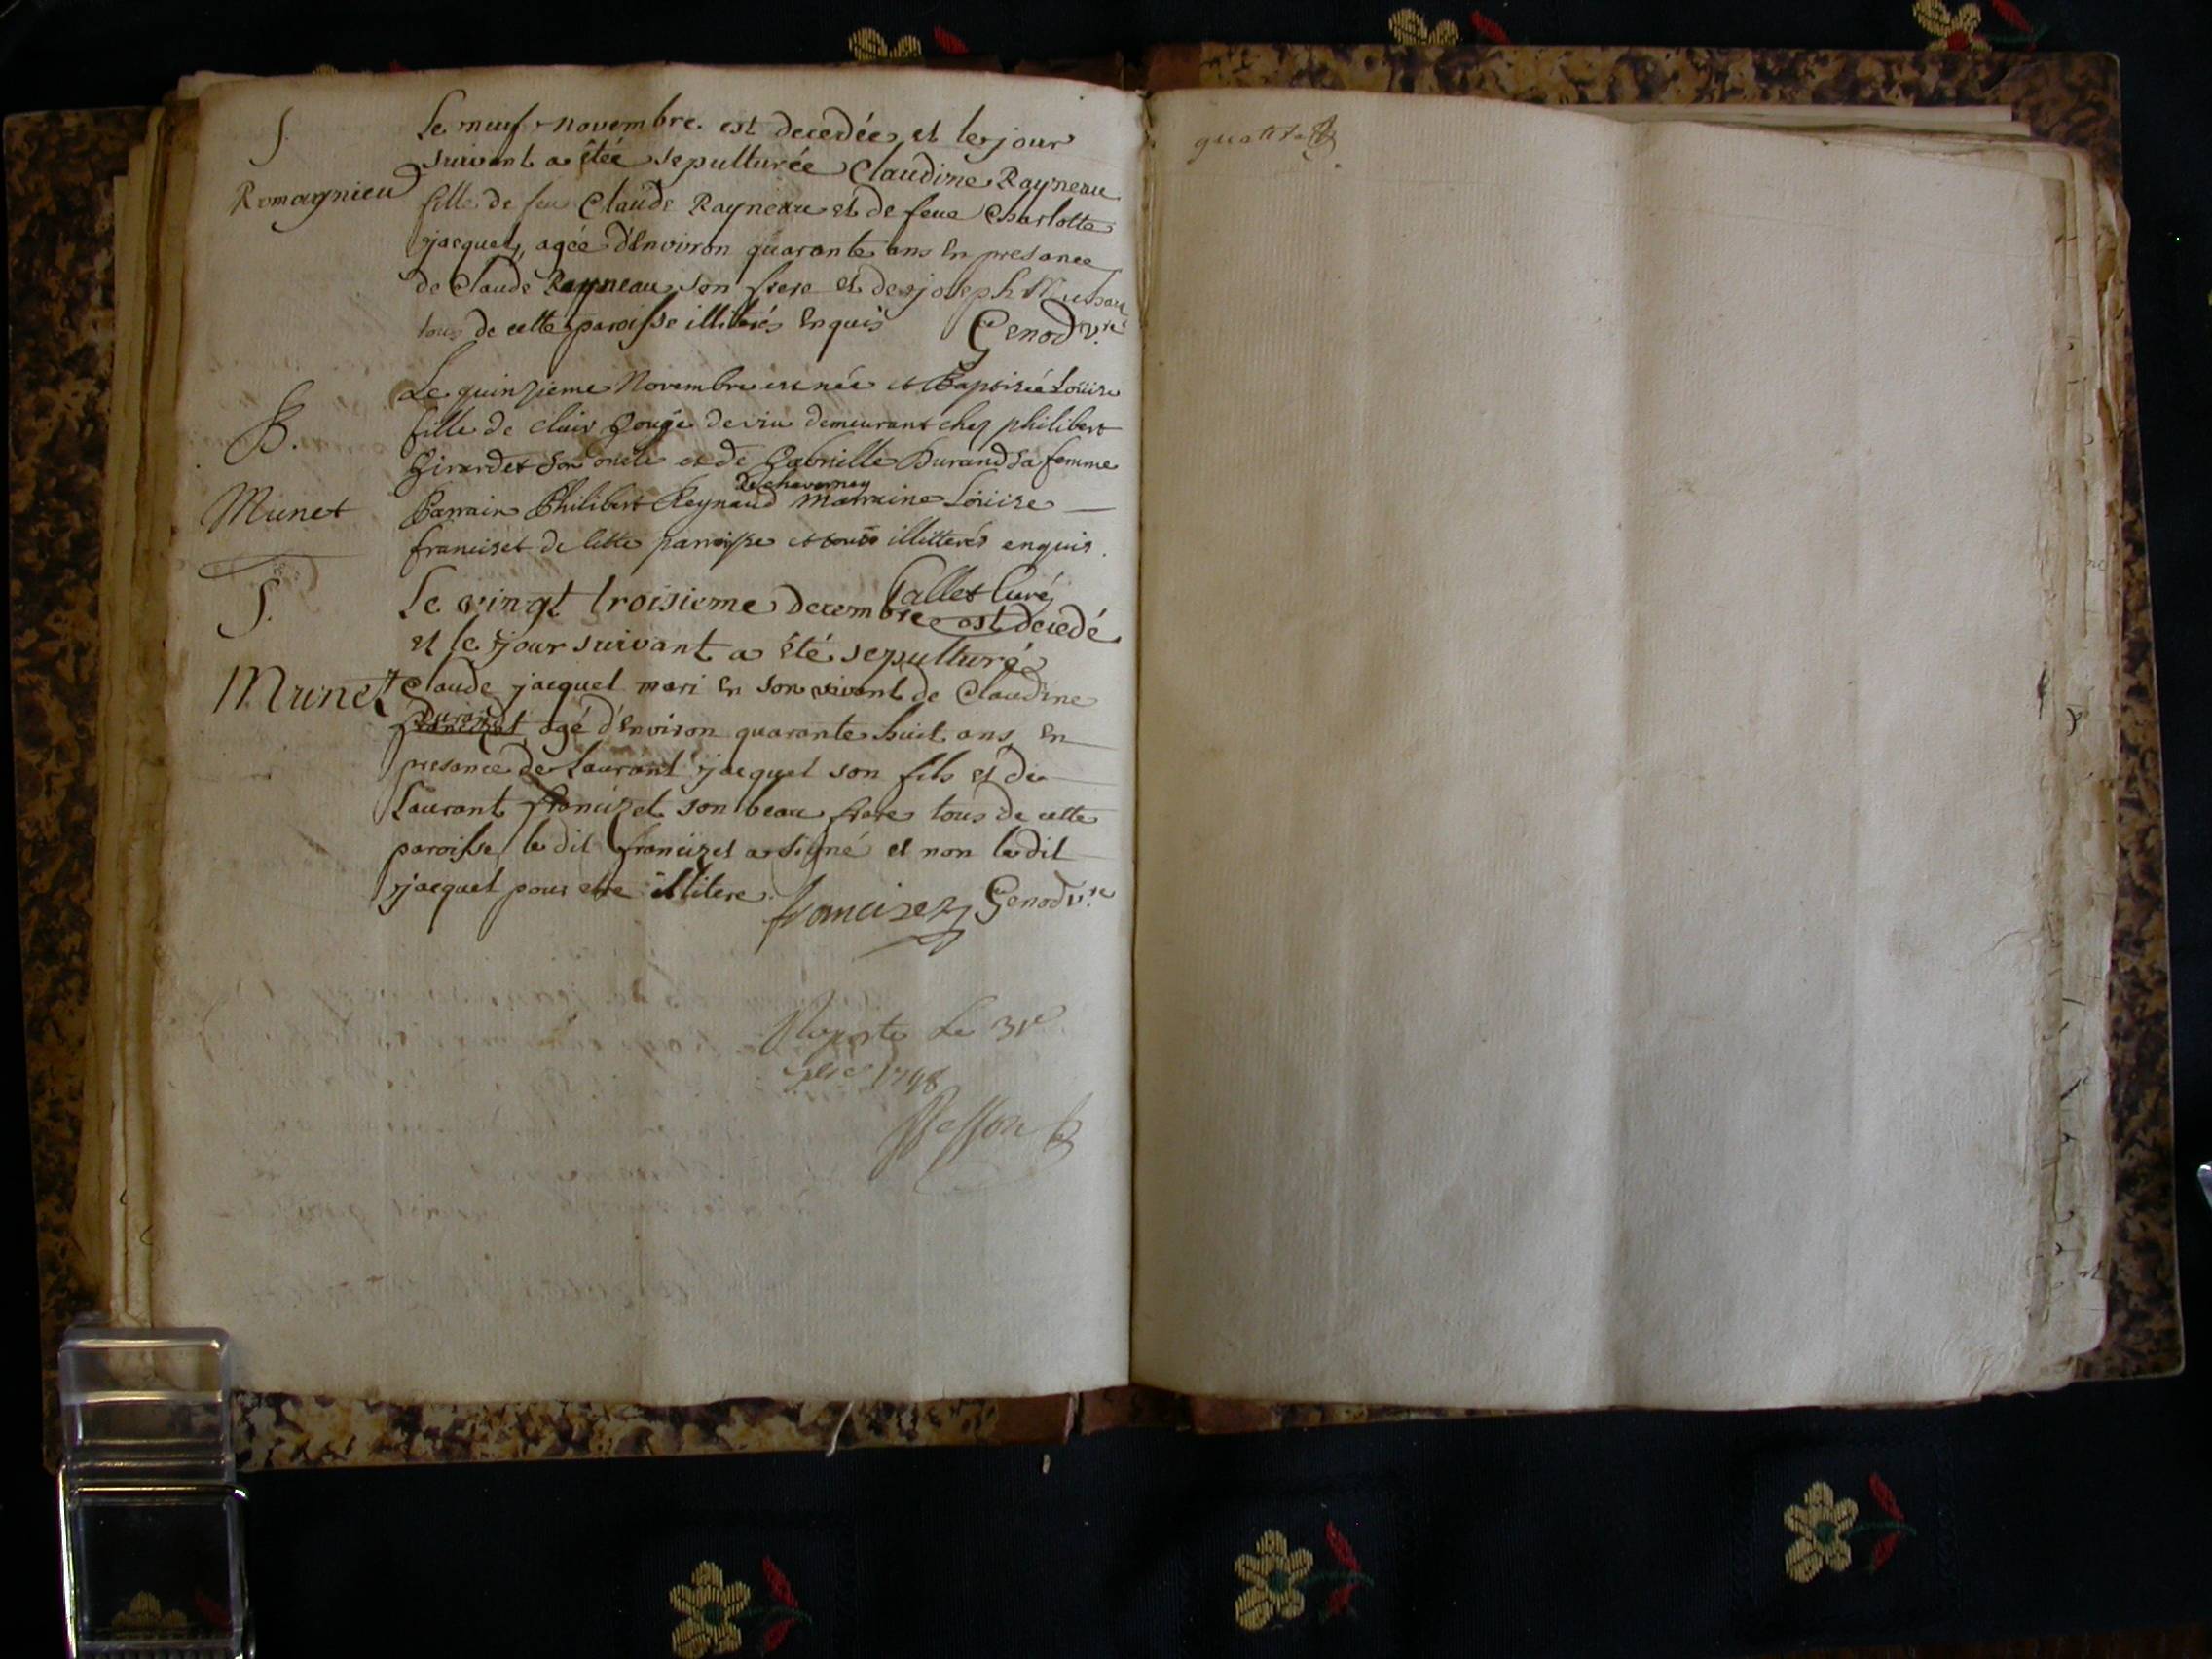 S.
Romagnieu
Le neuf novembre est decedée et le jour
suivant a étée sepulturée Claudine Rayneau
fille de feu Claude Rayneau et de feue Charlotte
jacquet, agée d'Environ quarante ans En presance
de Claude Rayneau son frere et de joseph
tous de cette paroisse illiterés Enquis Genod v.re
B.
Munet
Le quinzieme Novembre est née et Baptisée Loüise
fille de clair de viu demeurant chez philibert
Girardet son oncle et de Gabrielle Durand sa femme
de chavornay
Parrain Philibert Reynaud Marraine Loüise
francizet de cette parroisse et tous illitterés enquis.
Tallet Curé
S.
Munet
Le vingt troisieme decembre est decedé
et le jour suivant a été sepulturé
Claude jacquet mari En son vivant de Claudine
Durand
francizet agé d'Environ quarante huit ans, En
presance de Laurant jacquet son fils et de
Laurant francizet son beau frere tous de cette
paroisse le dit francizet a signé et non le dit
jacquet pour etre illitere.
francizez Genod v.re
Le 31e